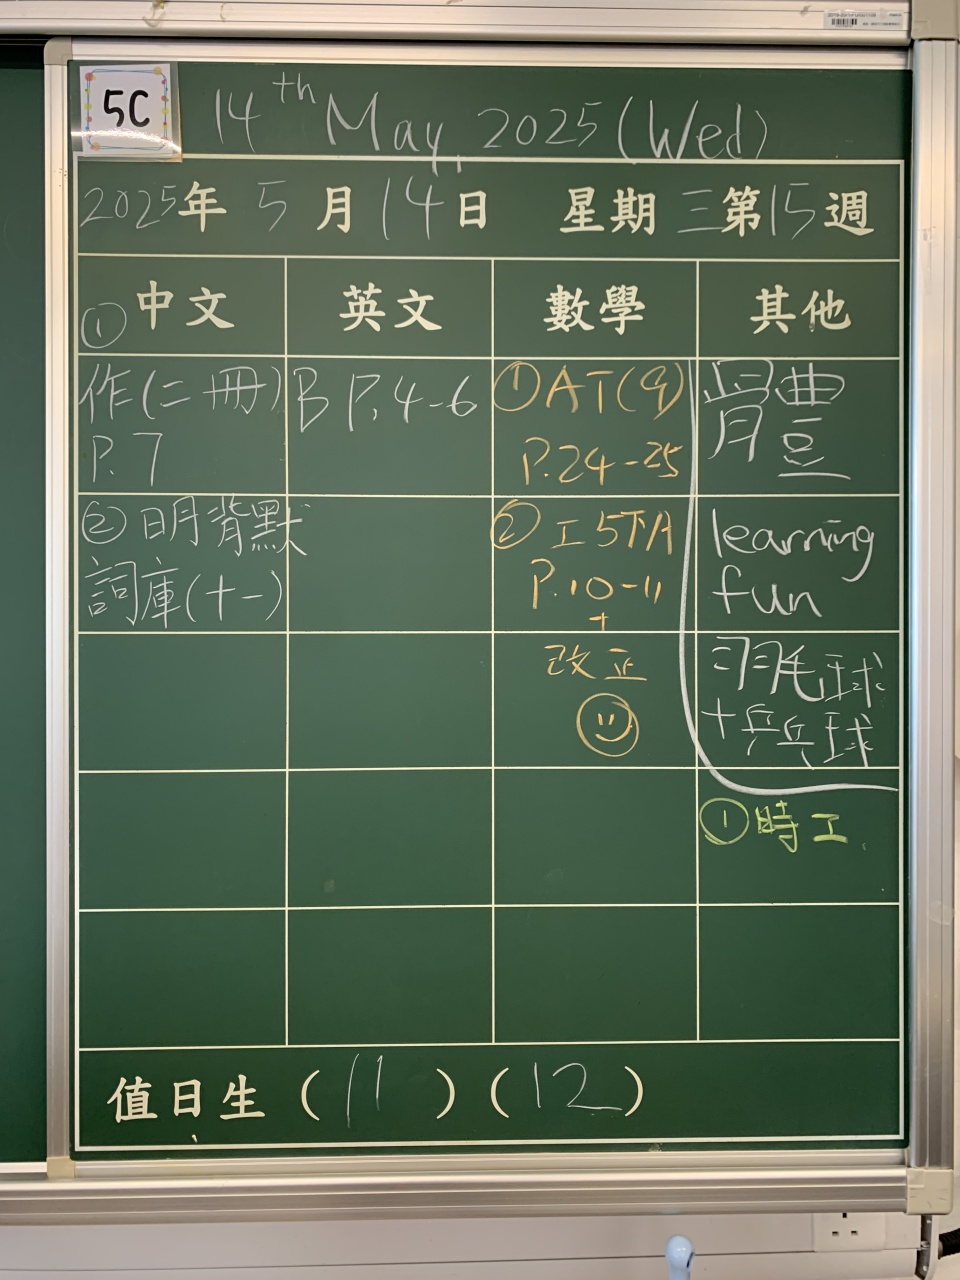 5C
14th May, 2025 (Wed)
2025年 5月14日 星期三第15週
中文 英文 數學 其他
① 作(二冊)
P.7
② 明背默
詞庫(十一)
B P.4-6
① AT(9)
P.24-25
② 工5下A
P.10-11
+
改正
體
learning
fun
羽毛球
+乒乓球
① 時工
值日生 (11) (12)